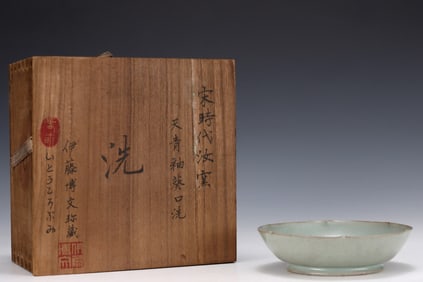 宋時代汝窯
天青釉葵口洗
洗
伊藤博文珍藏
いとうひろぶみ